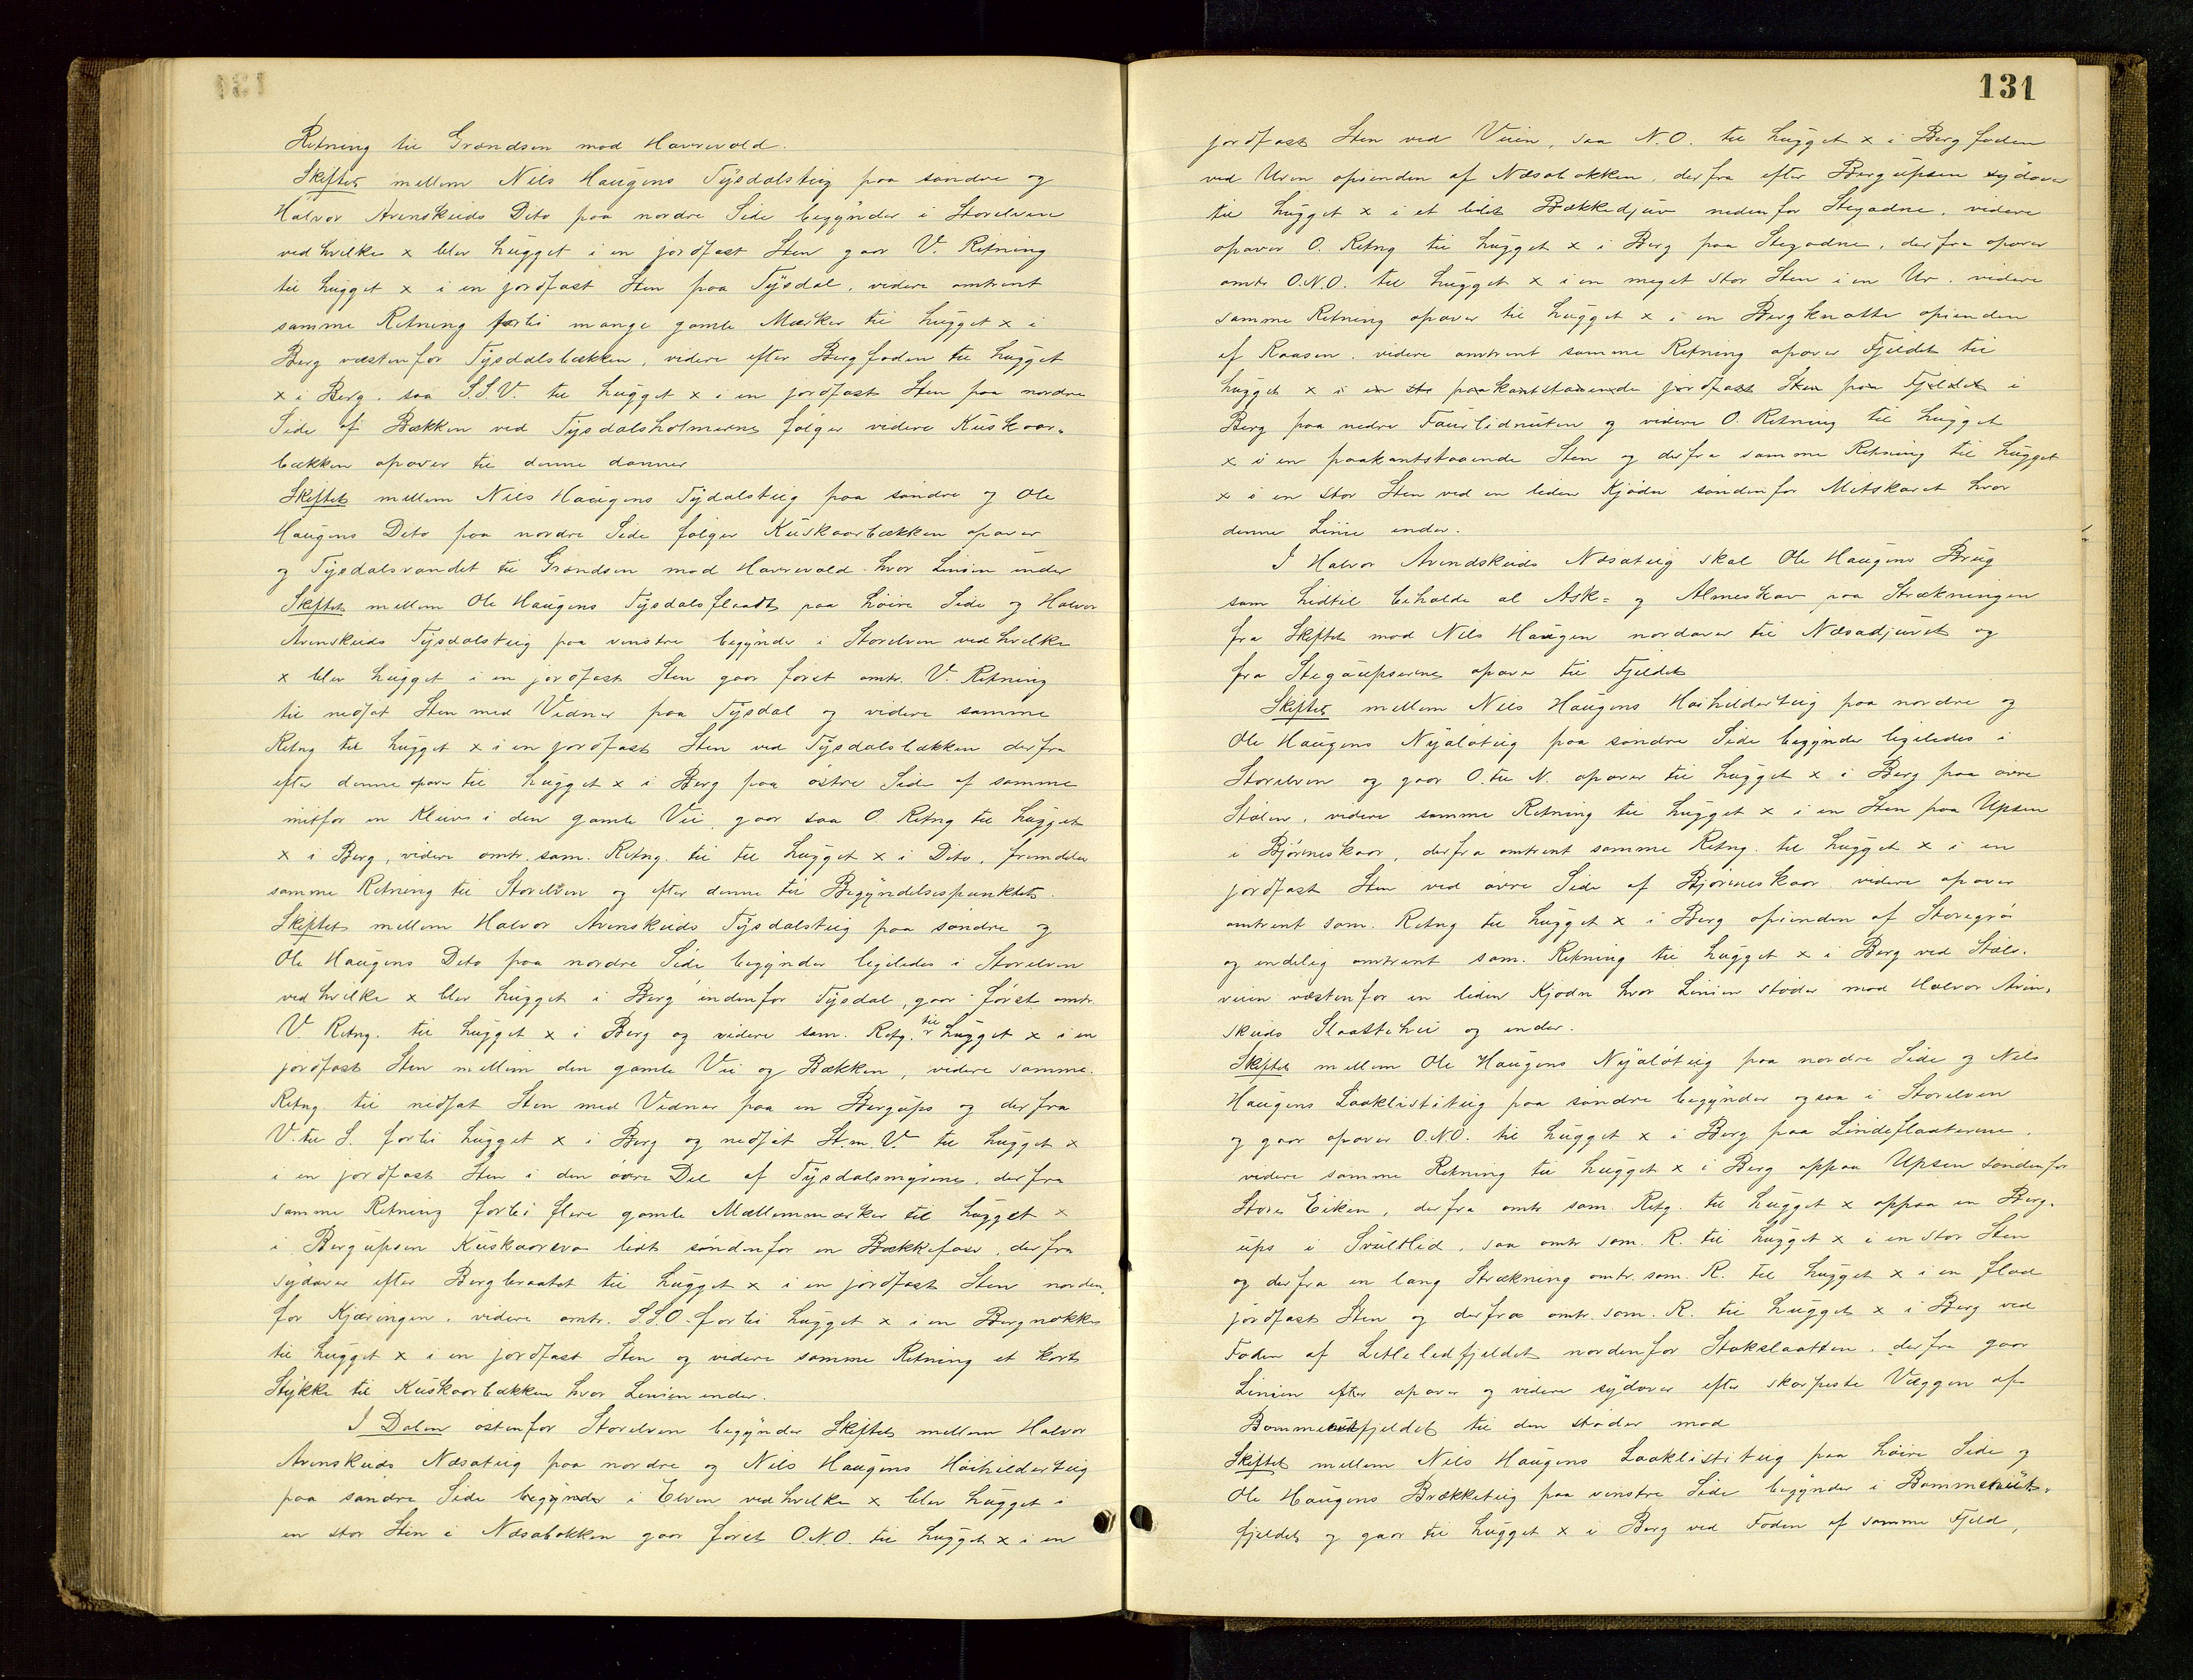 Retning til Grændsen mod Havrevold.
Skiftet mellem Nils Haugens Tysdalsteig paa søndre og
Halvor Avenskuds Dito paa nordre Side begynder i Storelven
ved hvilke x blev hugget i en jordfast Sten gaar V. Retning
til hugget x i en jordfast Sten paa Tysdal, videre omtrent
samme Retning forbi mange gamle Mærker til hugget x i
Berg vestenfor Tysdalsbækken, videre efter Bergfoden til hugget
x i Berg, saa S.S.V. til hugget x i en jordfast Sten paa nordre
Side af Bækken ved Tysdalsholmerne følger videre Kuskaar-
bækken opover til denne danner
Skiftet mellem Nils Haugens Tydalsteig paa søndre og Ole
Haugens Dito paa nordre Side følger Kuskaarbækken opover
og Tysdalsvandet til Grændsen mod Havrevold hvor Linien ender
Skiftet mellem Ole Haugens Tysdalsflaadt paa høire Side og Halvor
Avenskuds Tysdalsteig paa venstre begynder i Storelven ved hvilke
x blev hugget i en jordfast Sten gaar først omtr. V. Retning
til nedsat Sten med Vidner paa Tysdal og videre samme
Retng til hugget x i en jordfast Sten ved Tysdalsbækken derfra
efter denne opover til hugget x i Berg paa østre Side af samme
mitfor en Kleiv i den gamle Vei, gaar saa O. Retng til hugget
x i Berg, videre omtr. sam. Retng. til til hugget x i Dito, fremdeles
samme Retning til Storelven og efter denne til Begyndelsespunktet.
Skiftet mellem Halvor Avenskuds Tysdalsteig paa søndre og
Ole Haugens Dito paa nordre Side begynder ligeledes i Storelven
ved hvilke x blev hugget i Berg indenfor Tysdal, gaar først omtr.
V. Retng. til hugget x i Berg og videre sam. Retg. til hugget x i en
jordfast Sten mellem den gamle Vei og Bækken, videre samme
Retng til nedsat Sten med Vidner paa en Bergups og derfra
V. til S. forbi hugget x i Berg og nedsat St. m. V. til hugget x
i en jordfast Sten i den øvre Del af Tysdalsmyrene, derfra
samme Retning forbi flere gamle Mellemmærker til hugget x
i Bergupsen lidt søndenfor en Bækkefoss, derfra
sydover efter Bergbraatet til hugget x i en jordfast Sten norden-
for Kjæringen, videre omtr. S.S.O. forbi hugget x i en Bergnokke
til hugget x i en jordfast Sten og videre samme Retning et kort
Stykke til Kuskaarbækken hvor Linien ender.
I Dalen østenfor Storelven begynder Skiftet mellem Halvor
Avenskuds Næsateig paa nordre og Nils Haugens Høihilderteig
paa søndre Side begynder i Elven ved hvilke x blev hugget i
en stor Sten i Næsabakken gaar først O.N.O. til hugget x i en
131
jordfast Sten ved Veien, saa N.O. til hugget x i Bergfoden
ved Uren opienden af Næsabakken, derfra efter Bergupsen sydover
til hugget x i et lidet Bækkedjuv nedenfor Stegadne, videre
opover O. Retng til hugget x i Berg paa Stegadne, derfra opover
omtr O.N.O. til hugget x i en meget stor Sten i en Ur, videre
samme Retning opover til hugget x i en Bergknatte opienden
af Raasen, videre omtrent samme Retning opover Fjeldet til
hugget x i en sto paakantstaaende jordfast Sten paa Fjeldet i
Berg paa nedre Faurlidnuten og videre O. Retning til hugget
x i en paakantstaaende Sten og derfra samme Retning til hugget
x i en stor Sten ved en liden Kjødn søndenfor Mitskaret hvor
denne Linie ender.
I Halvor Avendskuds Næsateig skal Ole Haugens Brug
som hidtil beholde al Ask= og Almeskav paa Strækningen
fra Skiftet mod Nils Haugen nordover til Næsadjuvet og
fra Stegaupserne opover til Fjeldet
Skiftet mellem Nils Haugens Høihilderteig paa nordre og
Ole Haugens Nyaløteig paa søndre Side begynder ligeledes i
Storelven og gaar O. til N. opover til hugget x i Berg paa øvre
Stølen, videre samme Retning til hugget x i en Sten paa Upsen
i Bjørneskaar, derfra omtrent samme Retng. til hugget x i en
jordfast Sten ved øvre Side af Bjørneskaar videre opover
omtrent sam. Retng til hugget x i Berg opienden af Storegrø
og endelig omtrent sam. Retning til hugget x i Berg ved Støls-
veien vestenfor en liden Kjødn hvor Linien støder mod Halvor Aven-
skuds Slaattehei og ender.
Skiftet mellem Ole Haugens Nyaløteig paa nordre Side og Nils
Haugens Laaklistiteig paa søndre begynder ogsaa i Storelven
og gaar opover O.N.O. til hugget x i Berg paa Lindeflaaterne,
videre samme Retning til hugget x i Berg oppaa Upsen søndenfor
Store Eiken, derfra omtr sam. Retg. til hugget x oppaa en Berg-
ups i Svultlid, saa omtr sam. R. til hugget x i en stor Sten
og derfra en lang Strækning omtr. sam R. til hugget x i en flad
jordfast Sten og derfra omtr. sam. R. til hugget x i Berg ved
Foden af Litlelidfjeldet nordenfor Stokslaatten, derfra gaar
Linien efter opover og videre sydover efter skarpeste Væggen af
Bommenutfjeldet til den støder mod
Skiftet mellem Nils Haugens Laaklistiteig paa høire Side og
Ole Haugens Brækketeig paa venstre Side begynder i Bommenut-
fjeldet og gaar til hugget x i Berg ved Foden af samme Fjeld,